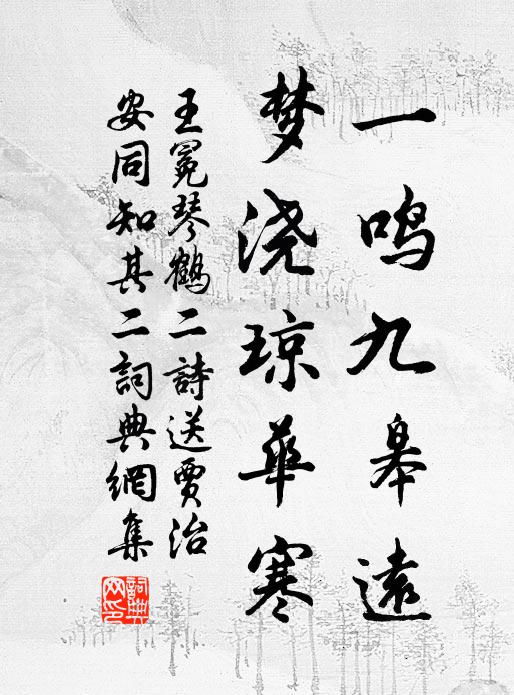 一鸣九皋遠
梦浇琼華寒
王冕琴鹤二詩送贾治
安同知其二詞典網集